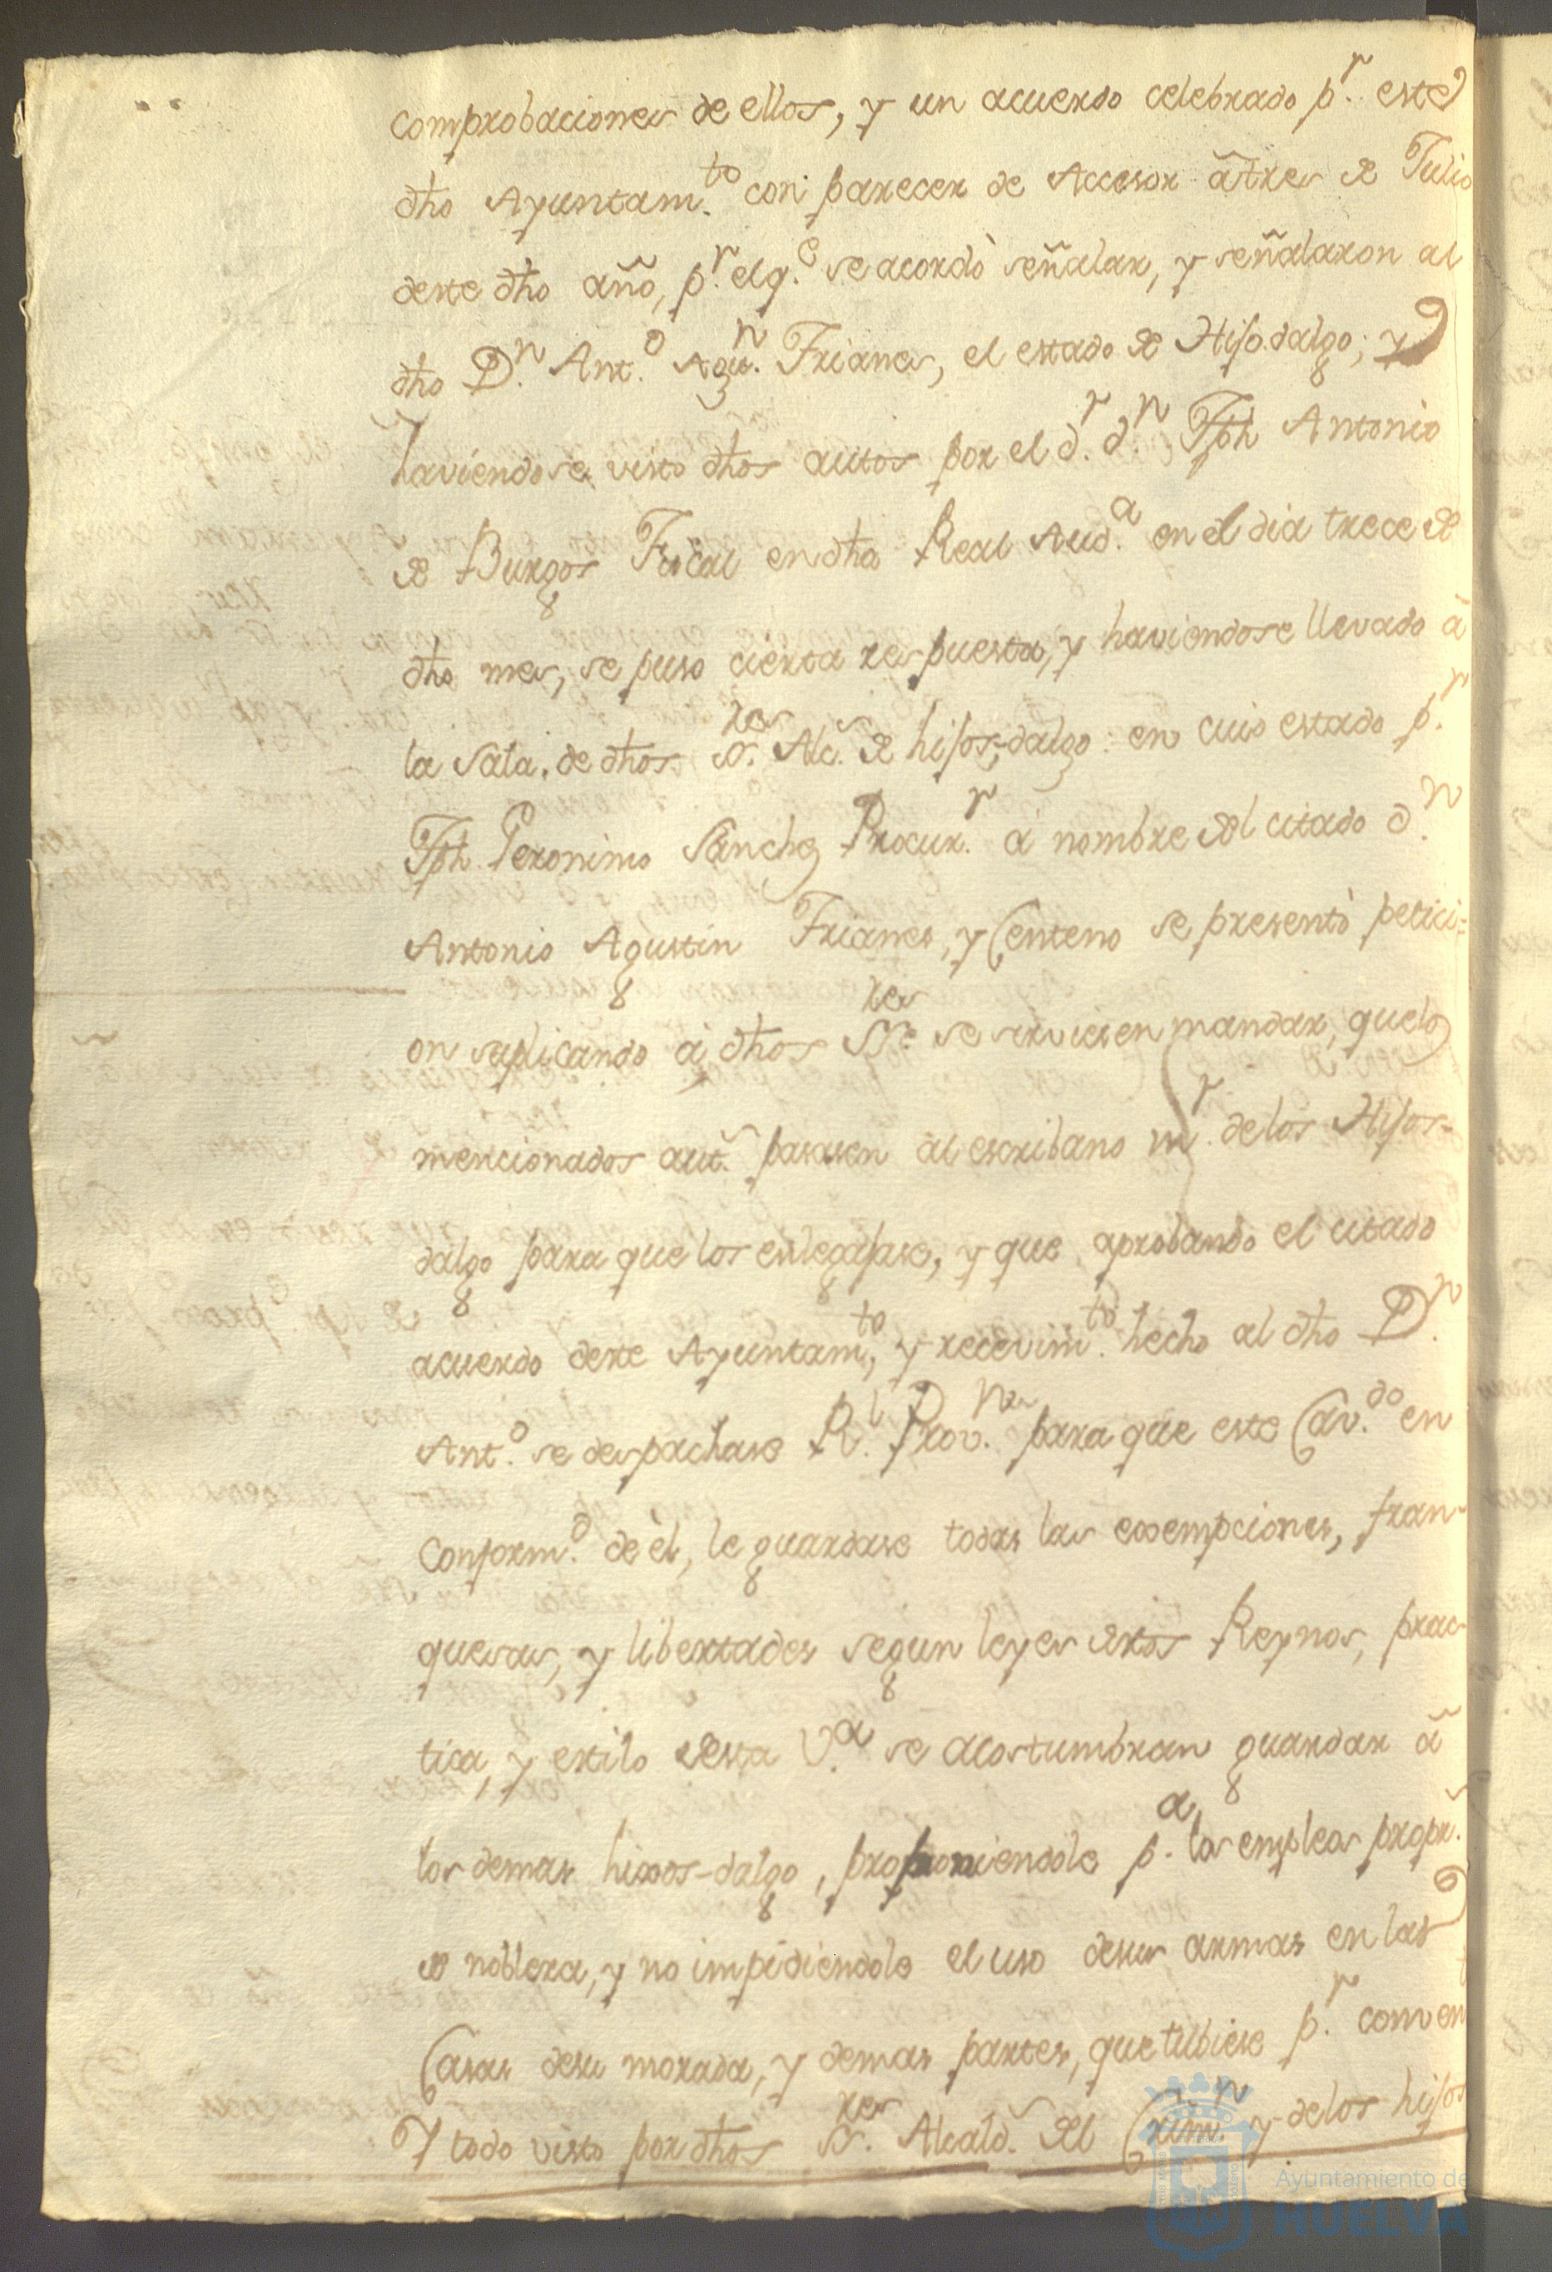 comprobaciones de ellos, y un acuerdo celebrado pr. este
dho Ayuntamto. con parecer de Accesor à tres de Julio
deste dho año, pr. el qe. se acordò señalar, y señalaron al
dho Dn. Anto. Agun. Trianes, el estado de Hijodalgo; y
haviendose visto dhos autos por el dr. dn. Jph Antonio
de Burgos Fiscal en dha Real Auda. en el dia trece de
dho mes, se puso cierta respuesta, y haviendose llevado à
la Sala, de dhos Sres. Alc. de hijos-dalgo: en cuio estado pr.
Jph Geronimo Sanchez Procurr. à nombre del citado dn.
Antonio Agustin Trianes, y Centeno se presentò petici=
on suplicando à dhos Sres. se sirviesen mandar, que los
mencionados aut. pasasen al escribano mr. de los Hijos-
dalgo para que los enlegajase, y que aprobando el citado
acuerdo deste Ayuntamto, y recevimto. hecho al dho Dn.
Anto. se despachase Rl. Provn. para que este Cavdo. en
conformd. de èl, le guardase todas las exempciones, fran-
quesas, y libertades segun leyes destos Reynos, prac
tica, y estilo desta Va. se acostumbran guardar à
los demas hixos-dalgo, proponiendole pa. los empleos propr.
de nobleza, y no impidiendole el uso de sus armas en las
Casas de su morada, y demas partes, que tubiese pr. conven
Y todo visto por dhos Sres. Alcald. del Crimn. y de los hijos
Ayuntamiento de
HUELVA